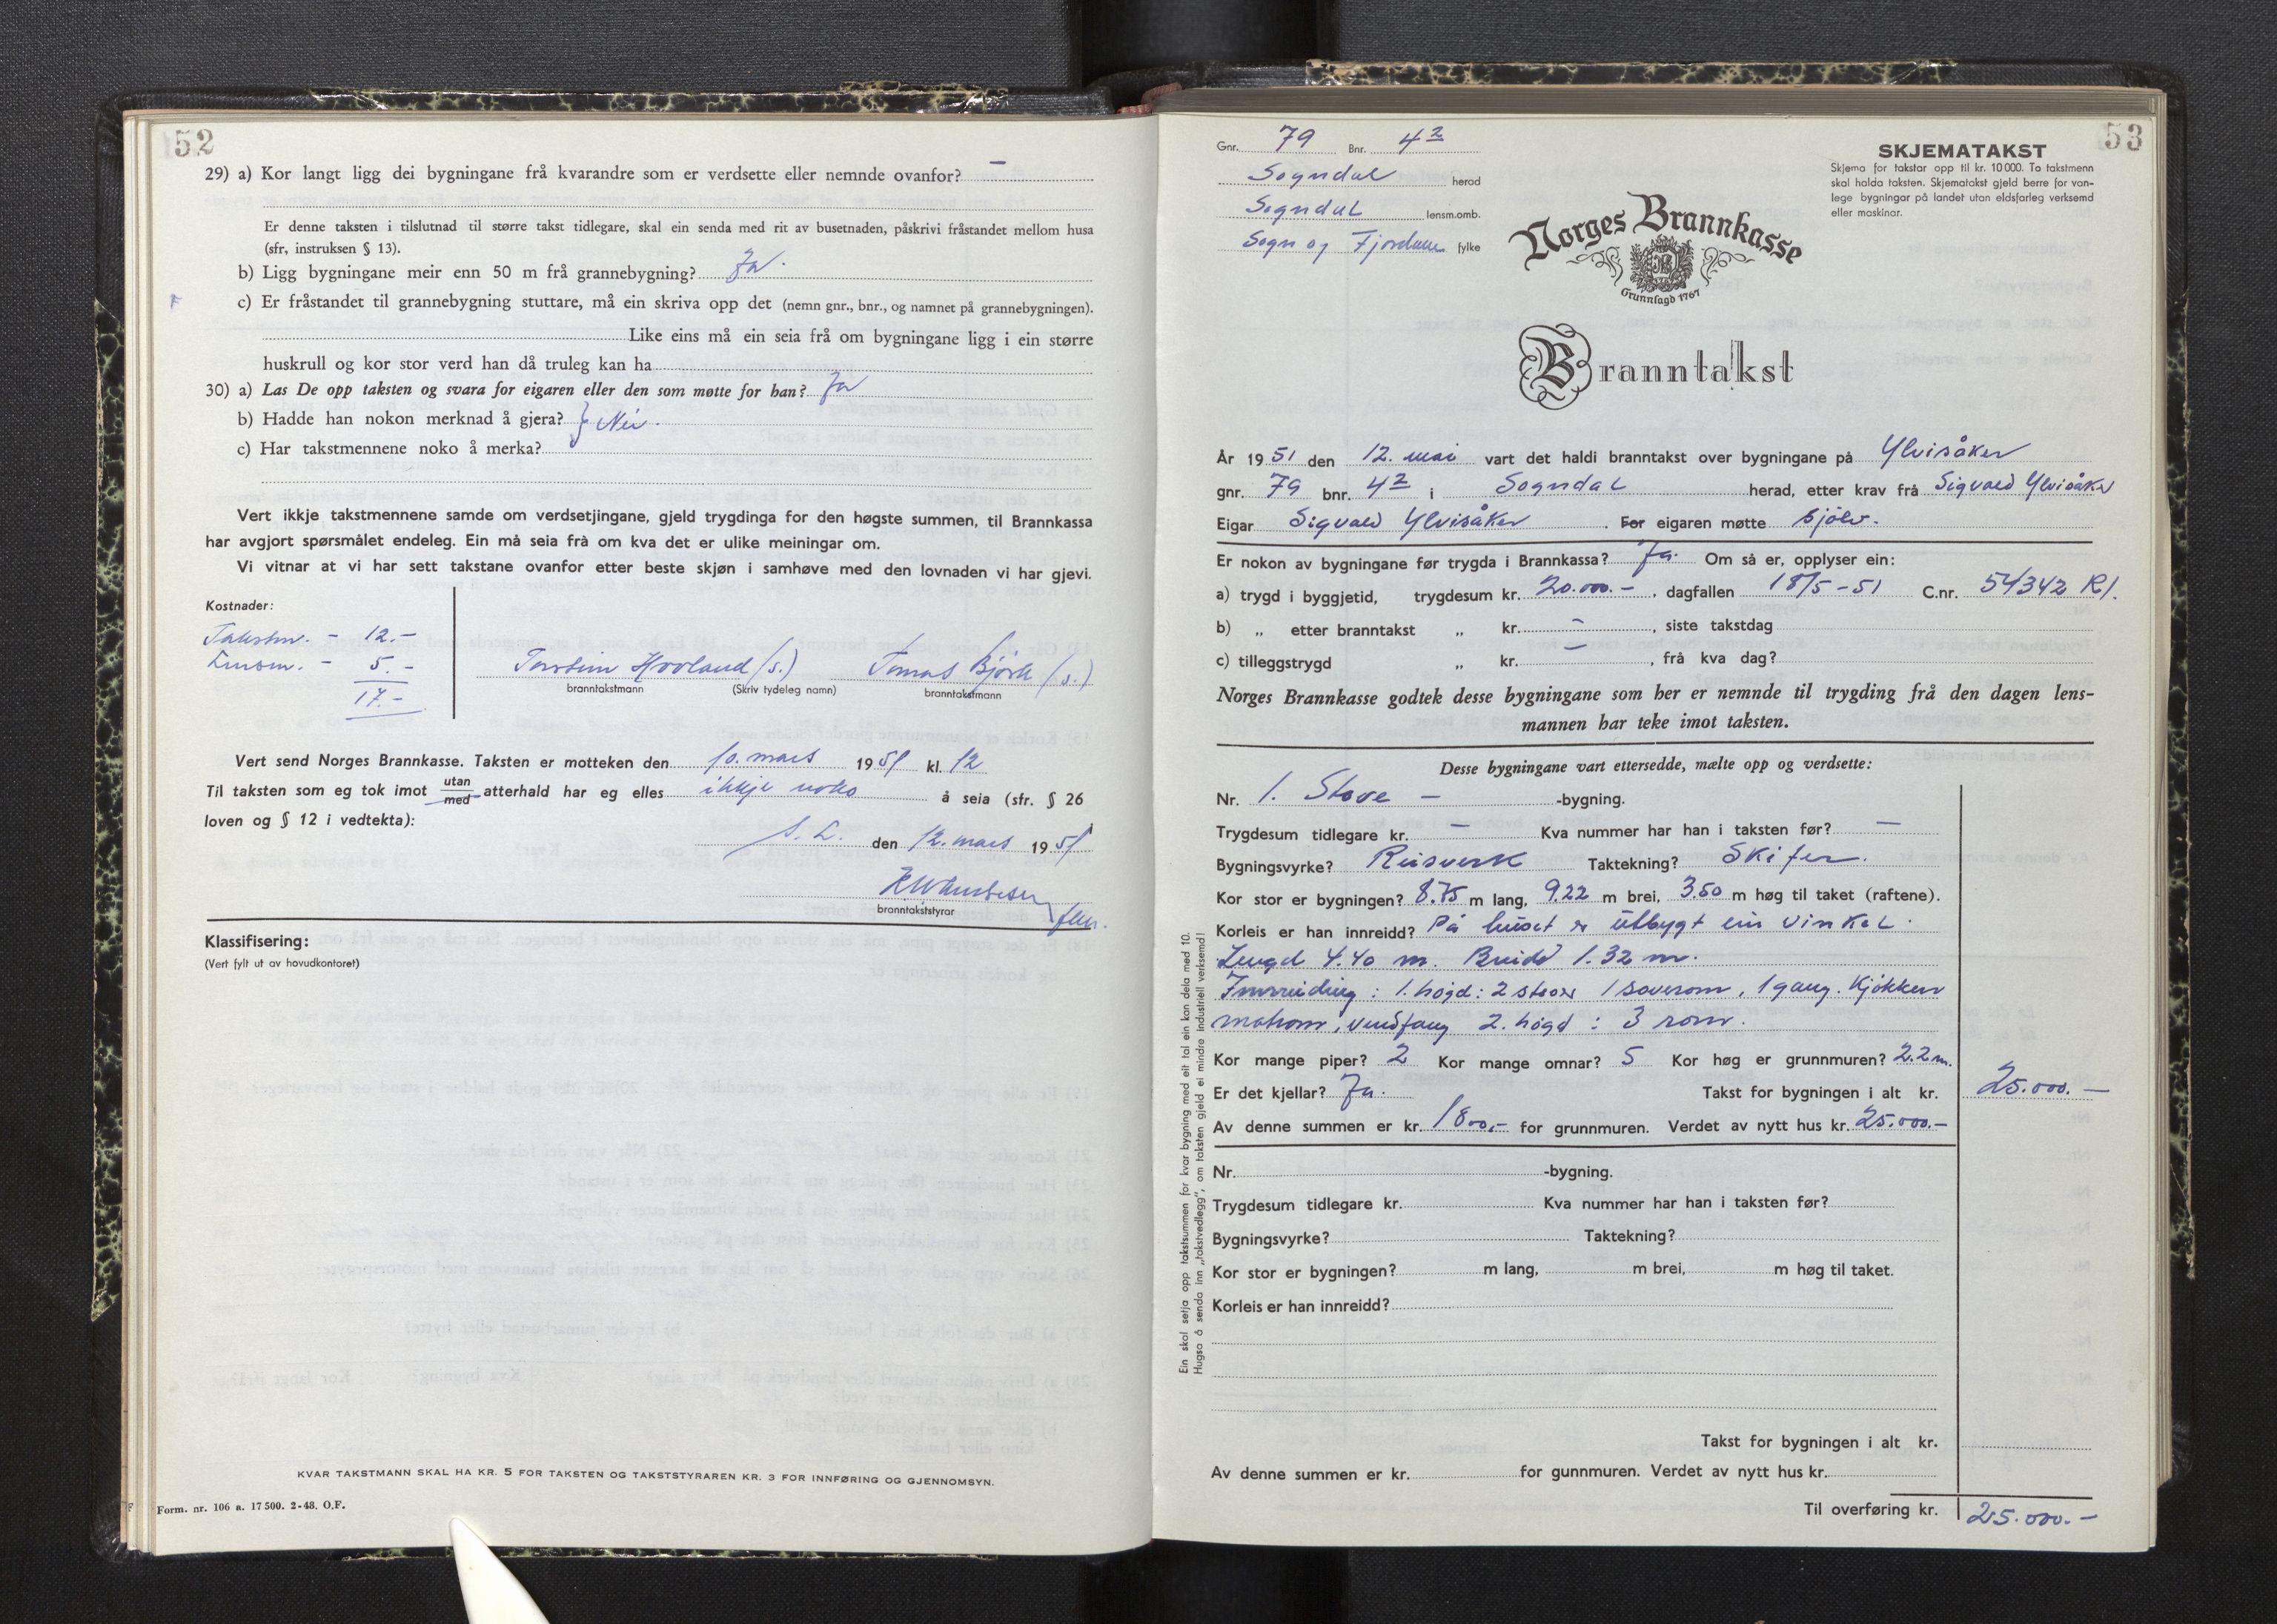 52
29) a) Kor langt ligg dei bygningane frå kvarandre som er verdsette eller nemnde ovanfor? —
Er denne taksten i tilslutnad til større takst tidlegare, skal ein senda med rit av busetnaden, påskrivi fråstandet mellom husa
(sfr, instruksen § 13).
b) Ligg bygningane meir enn 50 m frå grannebygning? Ja.
c) Er fråstandet til grannebygning stuttare, må ein skriva opp det (nemn gnr., bnr., og namnet på grannebygningen).
Like eins må ein seia frå om bygningane ligg i ein større
huskrull og kor stor verd han då truleg kan ha
30) a) Las De opp taksten og svara for eigaren eller den som møtte for han? Ja
b) Hadde han nokon merknad å gjera? } Nei.
c) Har takstmennene noko å merka?
Vert ikkje takstmennene samde om verdsetjingane, gjeld trygdinga for den høgste summen, til Brannkassa
har avgjort spørsmålet endeleg. Ein må seia frà om kva det er ulike meiningar om.
Vi vitnar at vi har sett takstane ovanfor etter beste skjøn i samhøve med den lovnaden vi har gjevi.
Kostnader:
Takstm. - 12.-
Lensm. - 5.-
17.-
Torstein Hovland (s.) Tomas Bjørk (s.)
branntakstmann (Skriv tydeleg namn) branntakstmann
Vert send Norges Brannkasse. Taksten er motteken den 10. mars 1951 kl. 12
Til taksten som eg tok imot utan/med atterhald har eg elles ikkje noko å seia (sfr. § 26
loven og § 12 i vedtekta):
S. L. den 12. mars 1951
branntakststyrar
Klassifisering:
(Vert fylt ut av hovudkontoret)
KVAR TAKSTMANN SKAL HA KR. 5 FOR TAKSTEN OG TAKSTSTYRAREN KR. 3 FOR INNFØRING OG GJENNOMSYN.
Form. nr. 106 a. 17500. 2-48. O.F.
53
Gnr. 79 Bnr. 42
Sogndal herod
Sogndal lensm.omb.
Sogn og Fjordane fylke
SKJEMATAKST
Skjema for takstar opp til kr. 10000. To takstmenn
skal halda taksten. Skjematakst gjeld berre for van-
lege bygningar på landet utan eldsfarleg verksemd
eller maskinar.
Norges Brannkasse
Grunnlagd 1767
Branntakst
År 1951 den 12. mai vart det haldi branntakst over bygningane på Ylvisåker
gnr. 79 bnr. 42 i Sogndal herad, etter krav frå Sigvald Ylvisåker
Eigar Sigvald Ylvisåker. For eigaren møtte sjølv.
Er nokon av bygningane før trygda i Brannkassa? Ja. Om så er, opplyser ein:
a) trygd i byggjetid, trygdesum kr. 20.000.-, dagfallen 18/5-51 C.nr. 54342 Rl.
b) „ etter branntakst „ kr. -, siste takstdag
c) tilleggstrygd „ kr. -, frå kva dag?
Norges Brannkasse godtek desse bygningane som her er nemnde til trygding frå den dagen lens-
mannen har teke imot taksten.
Desse bygningane vart ettersedde, mælte opp og verdsette:
Nr. 1. Stove - -bygning.
Trygdesum tidlegare kr. - Kva nummer har han i taksten før? -
Bygningsvyrke? Reisverk Taktekning? Skifer.
Kor stor er bygningen? 8.75 m lang, 9.22 m brei, 3.50 m høg til taket (raftene).
Korleis er han innreidd? På huset er utbygt ein vinkel.
Lengd 4.40 m. Breidd 1.32 m.
Innreiding: 1. høgd: 2 stover 1 soverom, 1 gang. Kjøkken
matrom, vindfang 2. høgd: 3 rom.
Kor mange piper? 2 Kor mange omnar? 5 Kor høg er grunnmuren? 2.2 m.
Er det kjellar? Ja. Takst for bygningen i alt kr. 25.000.-
Av denne summen er kr. 1800,- for grunnmuren. Verdet av nytt hus kr. 25.000.-
Nr. -bygning.
Trygdesum tidlegare kr. Kva nummer har han i taksten før?
Bygningsvyrke? Taktekning?
Kor stor er bygningen? m lang, m brei, m høg til taket.
Korleis er han innreidd?
Takst for bygningen i alt kr.
Av denne summen er kr. for gunnmuren. Verdet av nytt hus kr.
Til overføring kr. 25.000.-
Ein skal setja opp takstsummen for kvar bygning med eit tal ein kan dela med 10.
Hugsa å senda inn „takstvedlegg", om taksten gjeld ei mindre industriell verksemd!